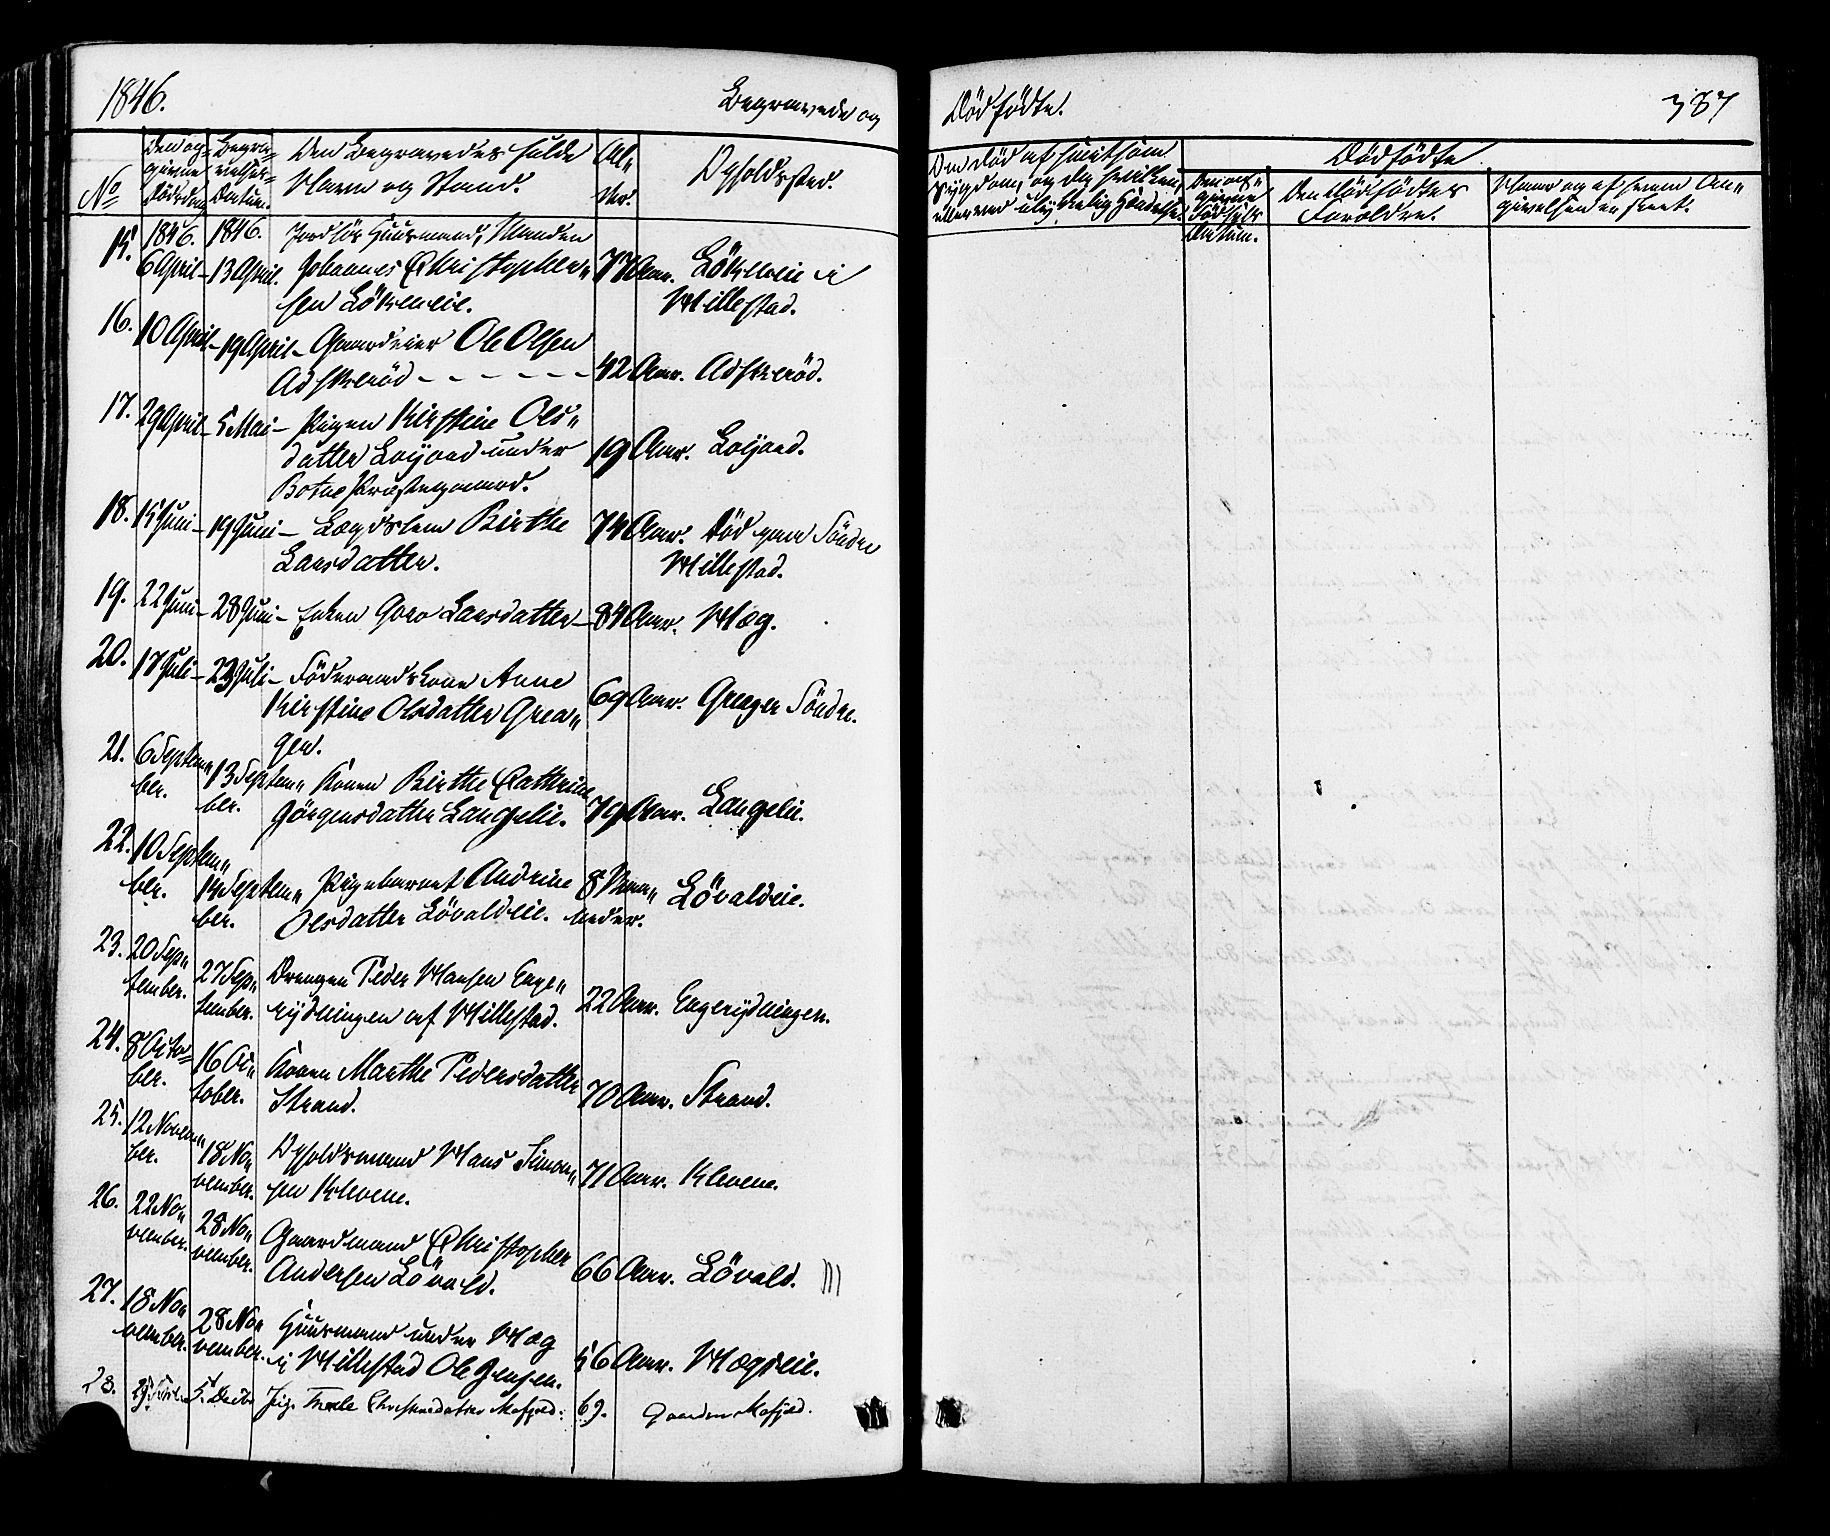 1846.
Begravede og
Dödfödte.
387
No
Den op-
givne
Dödsdag
Begra-
velses-
Datum.
Den Begravedes fulde
Navn og Stand.
Al-
der.
Opholdssted.
Den Död af smitsom
Sygdom, og da hvilken,
eller ved ulykkelig Hændelse.
Dödfödte
Den op-
givne
Födsels
Datum.
Den Dödfödtes
Forældre.
Naar og af hvem An-
givelsen er skeet.
15. 1846. 6 April- 1846. 13 April. Jordlös Huusmand, Manden
Johannes Christopher-
sen Lökeneie. 77 Aar. Lökeneie i
Hillestad.
16. 10 April- 19 April- Gaardeier Ole Olsen
Adskeröd - - - - - - 42 Aar. Adskeröd.
17. 29 April- 5 Mai- Pigen Kirstine Ols-
datter under
Botne Præstegjeld. 19 Aar.
18. 15 Juni- 19 Juni- Lægdslem Birthe
Larsdatter. 74 Aar. Död paa Söndre
Hillestad.
19. 22 Juni- 28 Juni- Enken Goro Larsdatter- 84 Aar. Hag.
20. 17 Juli- 23 Juli- Föderaadskone Anne
Kirstine Olsdatter Gren-
gen. 69 Aar. Grengen Söndre.
21. 6 Septem-
ber. 13 Septem-
ber. Konen Birthe Cathrine
Görgensdatter Langelie. 79 Aar. Langelie.
22. 10 Septem-
ber. 14 Septem-
ber. Pigebarnet Andrine
Olsdatter Lövaldeie. 8 Maa-
neder. Lövaldeie.
23. 20 Sep-
tember. 27 Sep-
tember. Drengen Peder Hansen Enge-
rydningen af Hillestad. 22 Aar. Engerydningen.
24. 8 Octo-
ber. 16 Oc-
tober. Konen Marthe Pedersdatter
Strand. 70 Aar. Strand.
25. 12 Novem-
ber. 18 No-
vember. Opholdsmand Hans Simon-
sen Klevene. 71 Aar. Klevene.
26. 22 No-
vember. 28 No-
vember. Gaardmand Christopher
Andersen Lövald. 66 Aar. Lövald.
27. 18 No-
vember. 28 No-
vember. Huusmand under Hag
i Hillestad Ole Jensen. 56 Aar. Hagseie.
28. 5 Decbr Pige Christensdatter Mofjeld. 69. Gaarden Mofjeld.